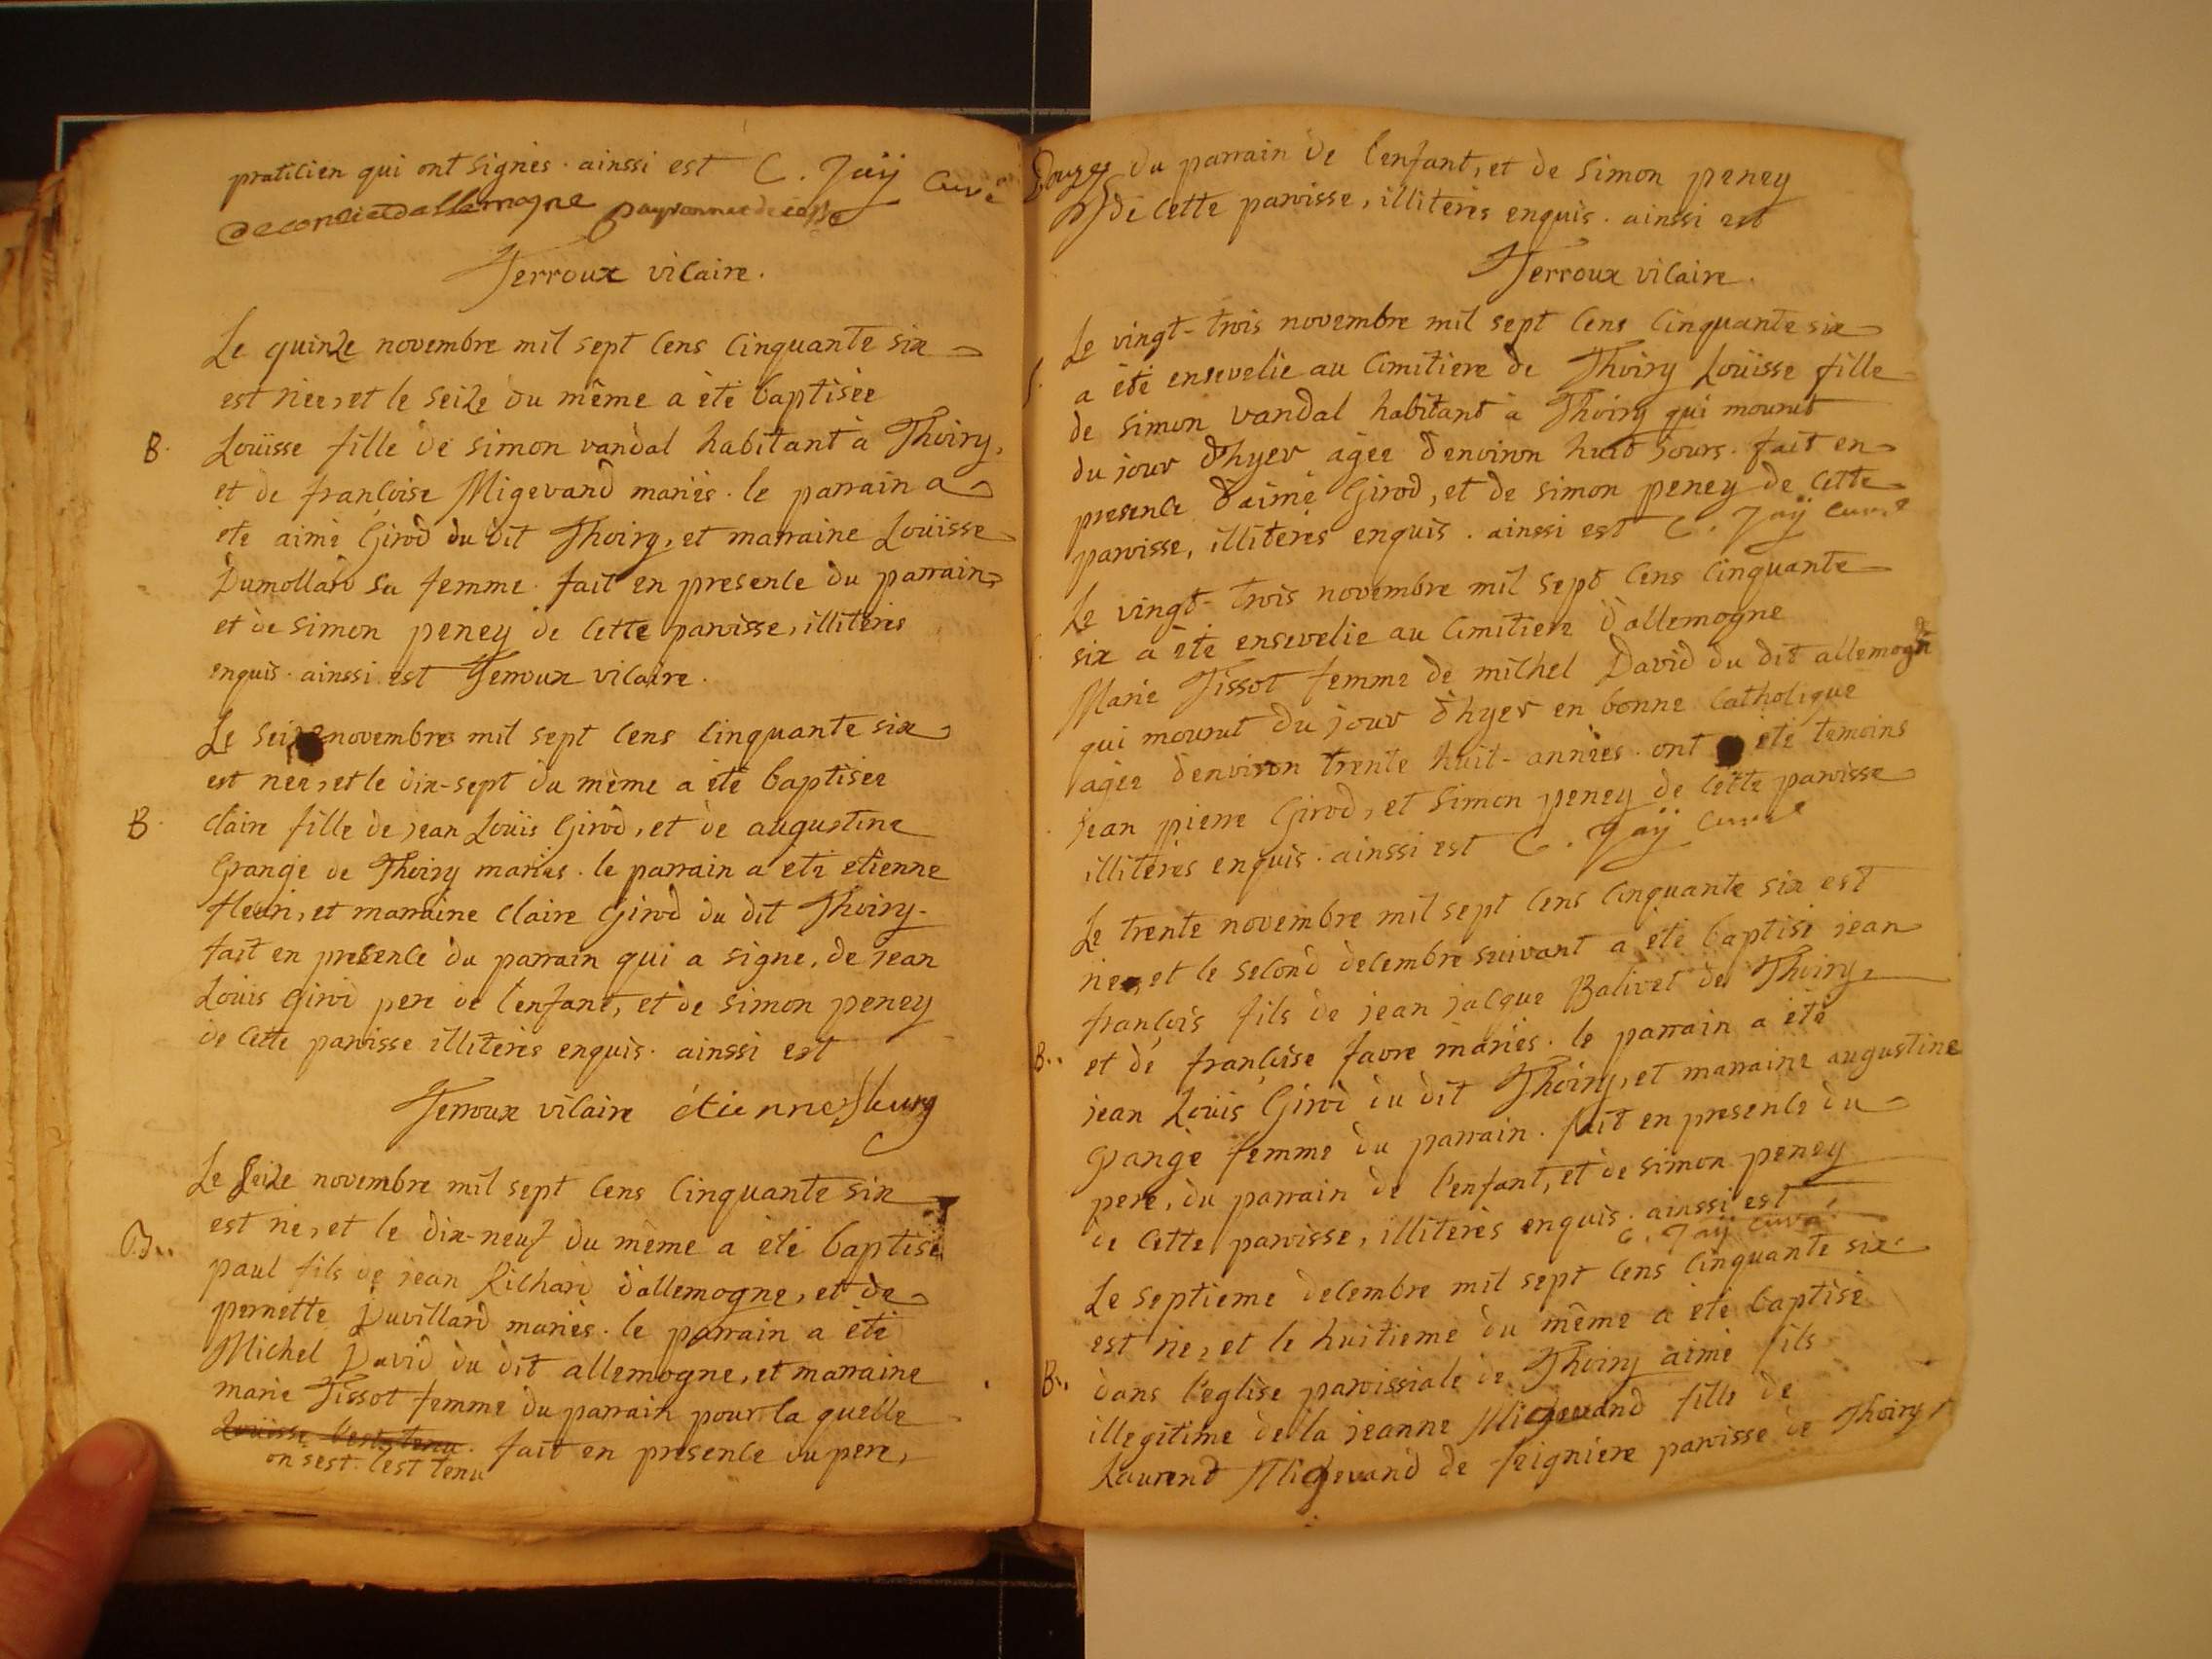 praticien qui ont signés. ainssi est C. Jaÿ Curé
Deconziéd'allemogne
Terroux vicaire.
Le quinze novembre mil sept cens cinquante six
est née, et le seize du même a été baptisée
B. Loüisse fille de simon vandal habitant à Thoiry,
et de françoise Migevand mariés. le parrain a
eté aimé Girod du dit Thoiry, et marraine Loüisse
Dumollard sa femme. fait en presence du parrain
et de simon peney de cette paroisse, illitérés
enquis. ainssi est Terroux vicaire.
Le seize novembre mil sept cens cinquante six
est née, et le dix-sept du même a été baptisée
B. claire fille de jean Loüis Girod, et de augustine
Grangé de Thoiry mariés. le parrain a eté etienne
fleuri, et marraine Claire Girod du dit Thoiry.
fait en presence du parrain qui a signé, de jean
Loüis Girod pere de l'enfant, et de simon peney
de cette paroisse illitérés enquis. ainssi est
Terroux vicaire étienne fleury
Le seize novembre mil sept cens cinquante six
est né, et le dix-neuf du même a été baptisé
B. paul fils de jean Richard d'allemogne, et de
pernette Duvillard mariés. le parrain a été
Michel David du dit allemogne, et marraine
marie Tissot femme du parrain pour la quelle
Loüisse l'est tenu. fait en presence du pere,
on s'est l'est tenu
du parrain de l'enfant, et de simon peney
de cette paroisse, illitérés enquis. ainssi est
Terroux vicaire.
Le vingt-trois novembre mil sept cens cinquante six
S. a été ensevelie au cimitiere de Thoiry Loüisse fille
de simon vandal habitant à Thoiry qui mourut
du jour d'hyer agée d'environ huit jours. fait en
presence d'aimé Girod, et de simon peney de cette
paroisse, illitérés enquis. ainssi est C. Jaÿ Curé
Le vingt-trois novembre mil sept cens cinquante
six a été ensevelie au cimitiere d'allemogne
Marie Tissot femme de michel David du dit allemogne
qui mourut du jour d'hyer en bonne catholique
agée d'environ trente huit-années. ont été temoins
jean pierre Girod, et simon peney de cette paroisse
illitérés enquis. ainssi est C. Jaÿ Curé
Le trente novembre mil sept cens cinquante six est
né, et le second decembre suivant a été baptisé jean
françois fils de jean jacque Balivet de Thoiry,
B. et de françoise favre mariés. le parrain a été
jean Loüis Girod du dit Thoiry, et marraine augustine
Grangé femme du parrain. fait en presence du
pere, du parrain de l'enfant, et de simon peney
de cette paroisse, illitérés enquis. ainssi est
C. Jaÿ Curé
Le septieme decembre mil sept cens cinquante six
est né, et le huitieme du même a été baptisé
B. dans l'eglise paroissiale de Thoiry aimé fils
illegitime de la jeanne Migevand fille de
Laurend Migevand de feigniere paroisse de Thoiry